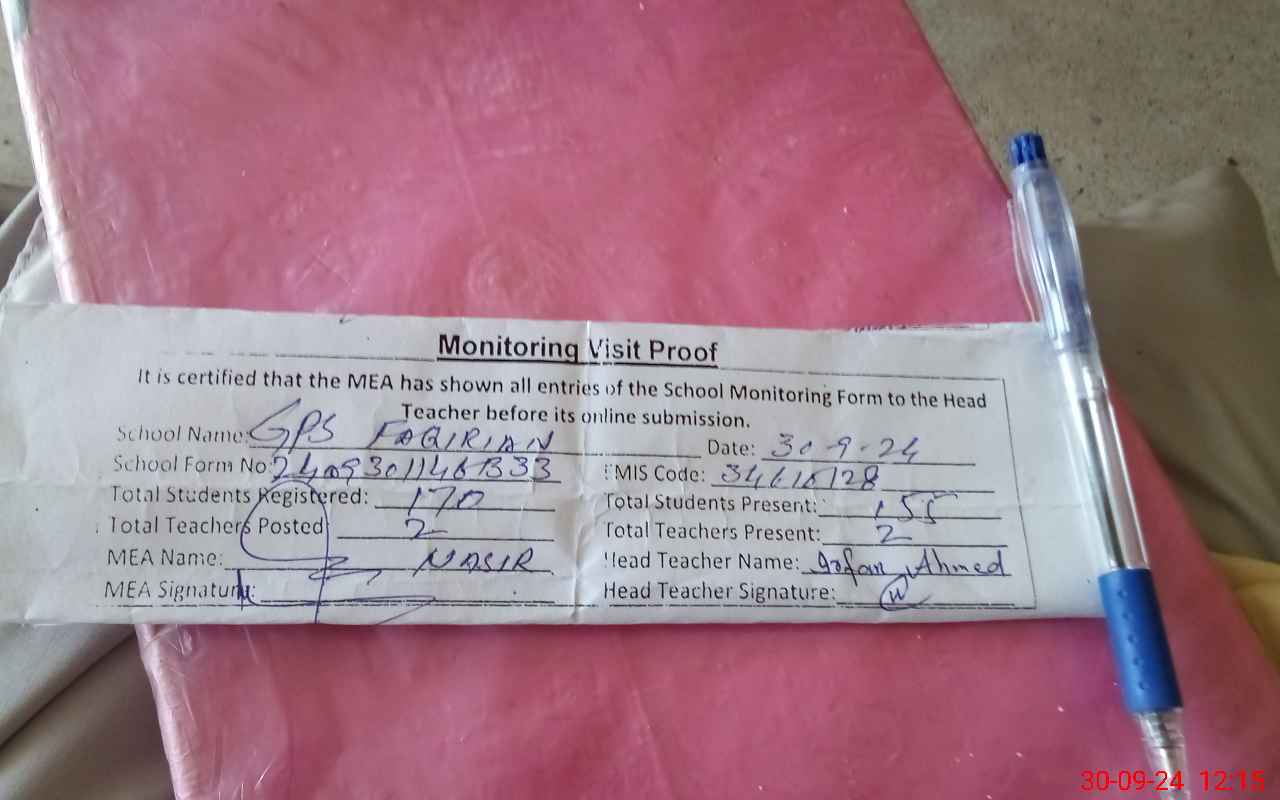 Monitoring Visit Proof
It is certified that the MEA has shown all entries of the School Monitoring Form to the Head
Teacher before its online submission.
School Name: GPS FAQIRIAN Date: 30-9-24
School Form No: EMIS Code:
Total Students Registered: 170 Total Students Present: 155
Total Teachers Posted 2 Total Teachers Present: 2
MEA Name: NASIR Head Teacher Name: Irfan Ahmed
MEA Signature: Head Teacher Signature:
30-09-24 12:15